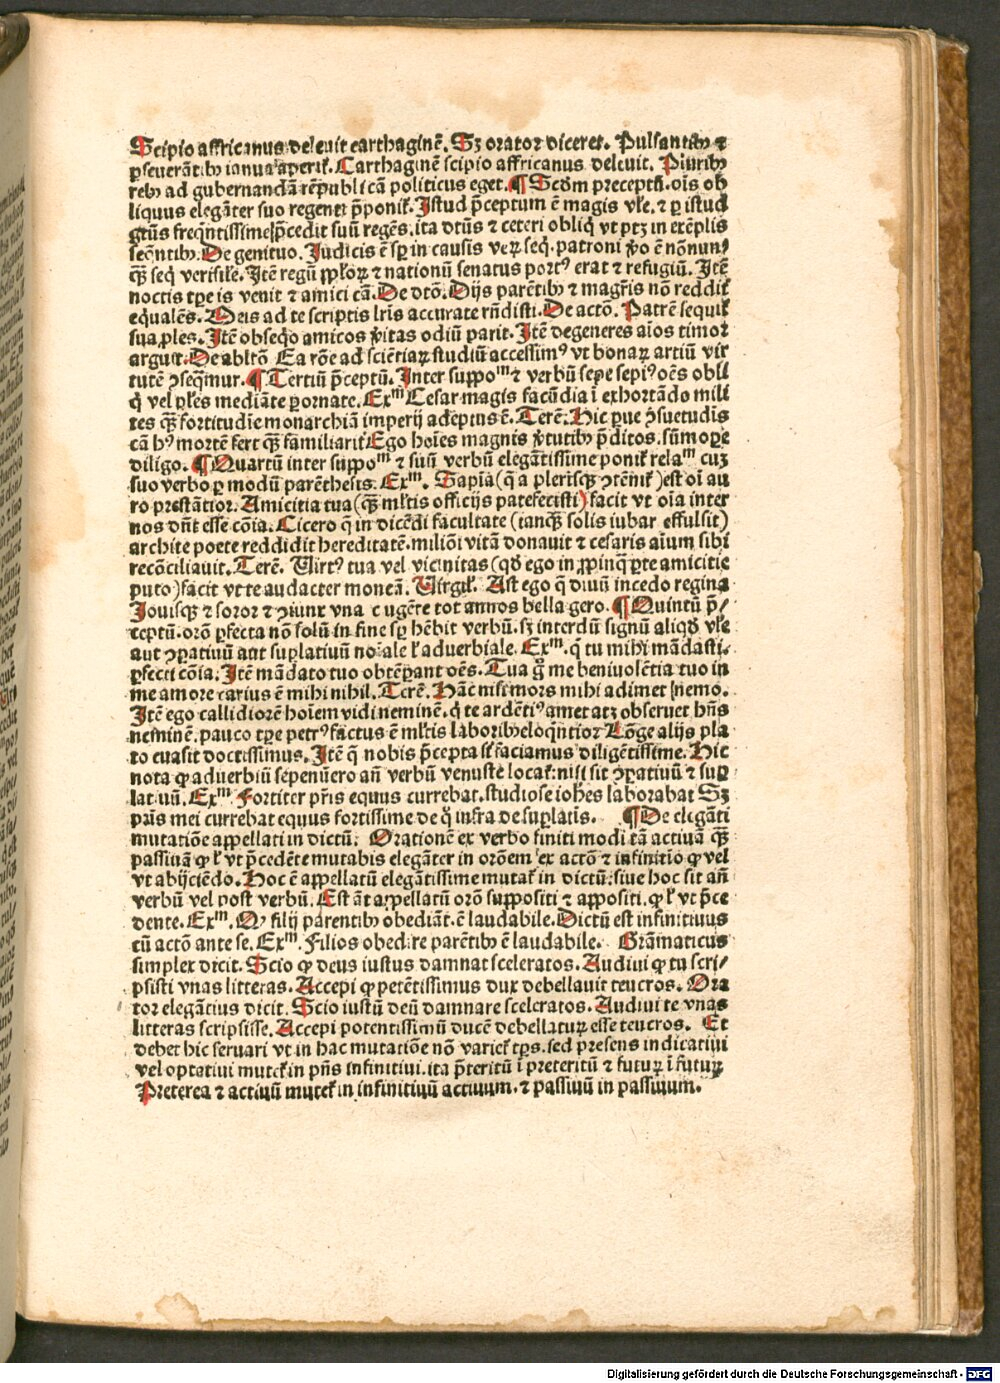 Scipio affricanus deleuit carthaginē. Sꝫ orator diceret. Pulsantibꝰ ⁊
ꝑseuerātibꝰ ianua aperit̃. Carthaginē scipio affricanus deleuit. Pluribꝰ
rebꝰ ad gubernandā rēpublicā politicus eget. ¶ Scd̄m preceptū. oīs ob
liquus elegāter suo regenti p̄ponit̃. Istud p̄ceptum ē magis vl̃e. ⁊ ꝑ istud
gtūs freq̄ntissime p̄cedit suū regēs. ita dtūs ⁊ ceteri obliq̄ vt ptꝫ in exēplis
seq̄ntibꝰ. De genituo. Iudicis ē sꝑ in causis veꝝ seq̄. patroni v̄o ē nōnun
qͣꝫ seq̄ verisile. Itē regū pplōꝝ ⁊ nationū senatus portꝰ erat ⁊ refugiū. Itē
noctis tꝑe is venit ⁊ amici cā. De dtō. Dijs parētibꝰ ⁊ magr̃is nō reddit̃
equalēs. Meis ad te scriptis lr̃is accurate rn̄disti. De actō. Patrē sequit̃
sua ꝓles. Itē obseq̄o amicos v̄itas odiū parit. Itē degeneres aīos timor
arguit. De abltō Ea rōe ad sciētiaꝝ studiū accessimꝰ vt bonaꝝ artiū vir
tutē ꝯseq̄mur. ¶ Tertiū p̄ceptū. Inter suppoᵐ ⁊ verbū sepe sepiꝰ oēs obli
q̄ vel ꝓles mediāte ꝑornate. Exᵐ Cesar magis facūdia ī exhortādo mili
tes qͣꝫ fortitudīe monarchiā imperij adeptus ē. Terē. Hic ꝑue ꝯsuetudis
cā hꝰ mortē fert qͣꝫ familiarit̃ Ego hoīes magnis v̄tutibꝰ p̄ditos. sūmope
diligo. ¶ Quartū inter suppoᵐ ⁊ suū verbū elegātissime ponit̃ relaᵐ cuꝫ
suo verbo ꝑ modū parēthesis. Exᵐ. Sapīa (q̄ a plerisqꝫ ꝯtēnit̃) est oī au
ro prestātior. Amicitia tua (qͣꝫ ml̃tis officijs patefecisti) facit vt oīa inter
nos dn̄t esse cōia. Cicero q̄ in dicēdi facultate (tanqͣꝫ solis iubar effulsit)
archite poete reddidit hereditatē. miliōi vitā donauit ⁊ cesaris aīum sibi
recōciliauit. Terē. Uirtꝰ tua vel vicinitas (qd̄ ego in ꝓpinq̄ ꝑte amicitie
puto) facit vt te audacter moneā. Uirgil̃. Ast ego q̄ diuū incedo regina
Iouisqꝫ ⁊ soror ⁊ ꝯiunx vna c ugēte tot annos bella gero. ¶ Quintū p̄/
ceptū. orō ꝑfecta nō solū in fine sꝑ hēbit verbū. sꝫ interdū signū aliqd̄ vl̃e
aut ꝯꝑatiuū aut suꝑlatiuū noīale l̃ aduerbiale. Exᵐ. q̄ tu mihi mādasti.
ꝑfeci cōia. Itē mādato tuo obtēꝑant oēs. Tua gͦ me beniuolētia tuo in
me amore carius ē mihi nihil. Terē. Hāc nisi mors mihi adimet nemo.
Itē ego callidiorē hoīem vidi neminē. q̄ te ardētiꝰ amet atꝫ obseruet hn̄s
neminē. pauco tꝑe petrꝰ factus ē ml̃tis laboribꝰ eloq̄ntior Lōge alijs pla
to euasit doctissimus. Itē q̄ nobis p̄cepta sīt faciamus diligētissime. Hic
nota ꝙ aduerbiū sepenūero an̄ verbū venuste locat̃: nisi sit ꝯꝑatiuū ⁊ suꝑ
latiuū. Exᵐ Fortiter pr̄is equus currebat. studiose ioh̄es laborabat Sꝫ
pr̄is mei currebat equus fortissime de q̄ infra de suꝑlatis. ¶ De elegāti
mutatiōe appellati in dictū. Orationē ex verbo finiti modi tā actiuā qͣꝫ
passiuā ꝙ l̃ vt p̄cedēte mutabis elegāter in orōem ex actō ⁊ infinitīo ꝙ vel
vt abijciēdo. Hoc ē appellatū elegātissime mutat̃ in dictū: siue hoc sit an̄
verbū vel post verbū. Est āt appellatū orō suppositi ⁊ appositi. ꝙ l̃ vt p̄ce
dente. Exᵐ. Qꝙ filij parentibꝰ obediāt. ē laudabile. Dictū est infinitiuus
cū actō ante se. Exᵐ. Filios obedire parētibꝰ ē laudabile. Grāmaticus
simplex dicit. Scio ꝙ deus iustus damnat sceleratos. Audiui ꝙ tu scri/
psisti vnas litteras. Accepi ꝙ potētissimus dux debellauit teucros. Ora
tor elegācius dicit. Scio iustū deū damnare sceleratos. Audiui te vnas
litteras scripsisse. Accepi potentissimū ducē debellatuꝝ esse teucros. Et
debet hic seruari vt in hac mutatiōe nō variet̃ tꝑs. sed presens indicatiui
vel optatiui mutet̃ in pn̄s infinitiui. ita p̄teritū ī preteritū ⁊ futuꝝ ī futuꝝ
Preterea ⁊ actiuū mutet̃ in infinitiuū actiuum. ⁊ passiuū in passiuum.
Digitalisierung gefördert durch die Deutsche Forschungsgemeinschaft - DFG